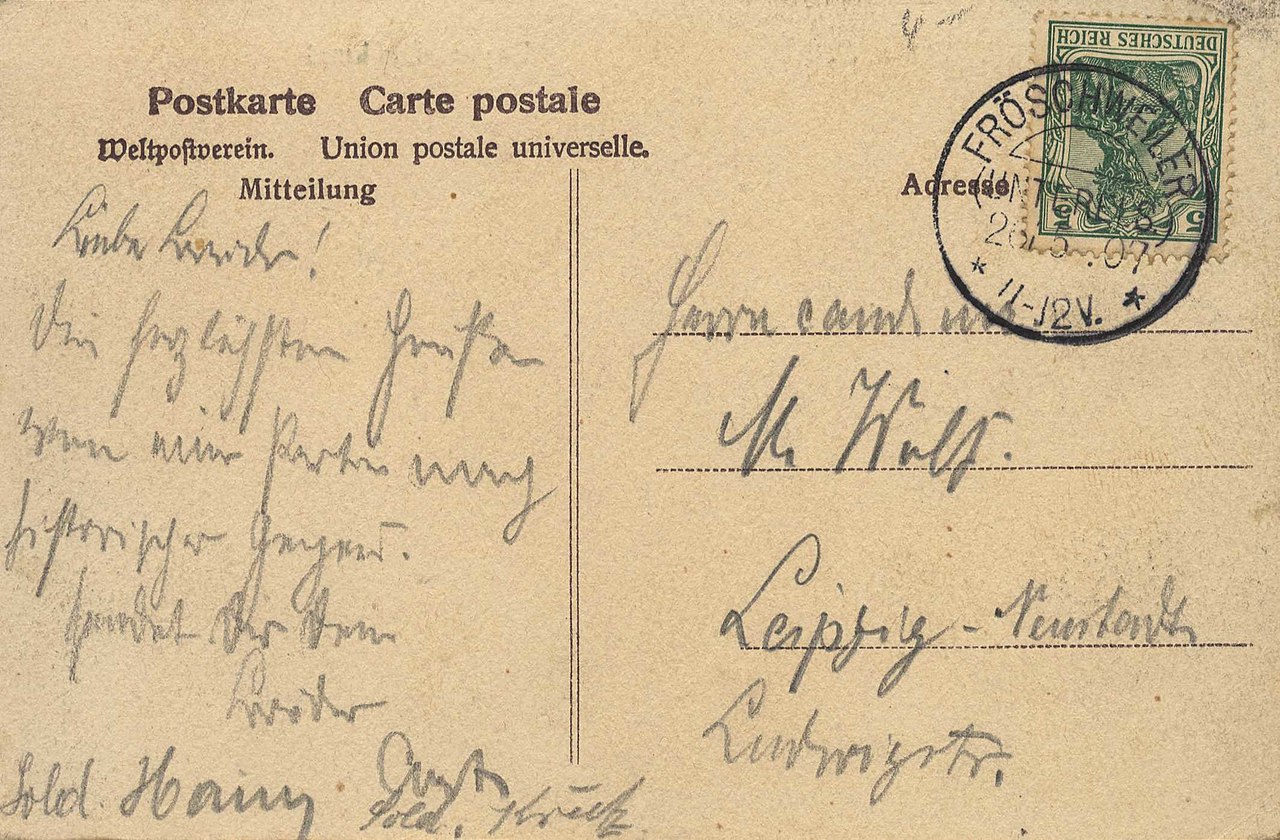 Postkarte Carte postale
Weltpostverein. Union postale universelle.
Mitteilung
Adresse
DEUTSCHES REICH
5 5
FRÖSCHWEILER
(UNTERELS)
26.5.07
* 11-12V. *
Lieber Bruder!
Die herzlichsten Grüße
von einer Partie nach
historischer Gegend.
sendet Dir Dein
Bruder
Curt
Sold. Sold.
Herrn cand
M. Wolf.
Leipzig-Neustadt
Ludwigstr.